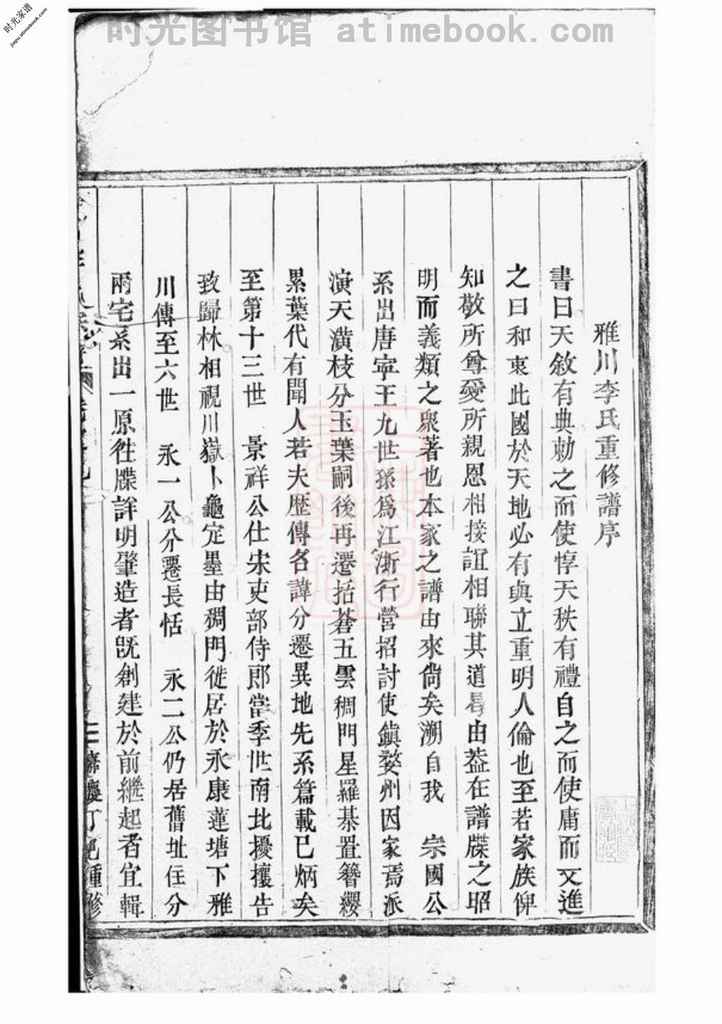 时光图书馆 atimebook.com
时光家谱
jiapu.atimebook.com
雅川李氏重修譜序
書曰天敘有典勅之而使惇天秩有禮自之而使庸而又進
之曰和衷此國於天地必有與立重明人倫也至若家族俾
知敬所尊愛所親恩相接誼相聯其道曷由葢在譜牒之昭
明而義類之衆著也本家之譜由來尙矣溯自我 宗國公
系出唐寧王九世孫爲江浙行營招討使鎭婺州因家焉派
演天潢枝分玉葉嗣後再遷括蒼五雲稠門星羅棊置簪纓
累葉代有聞人若夫歷傳名諱分遷異地先系篇載已炳矣
至第十三世 景祥公仕宋吏部侍郎當季世南北擾攘告
致歸林相視川嶽卜龜定墨由稠門徙居於永康蓮塘下雅
川傳至六世 永一公分遷長恬 永二公仍居舊址住分
兩宅系出一原徃牒詳明肇造者旣創建於前繼起者宜輯
慶丁重修